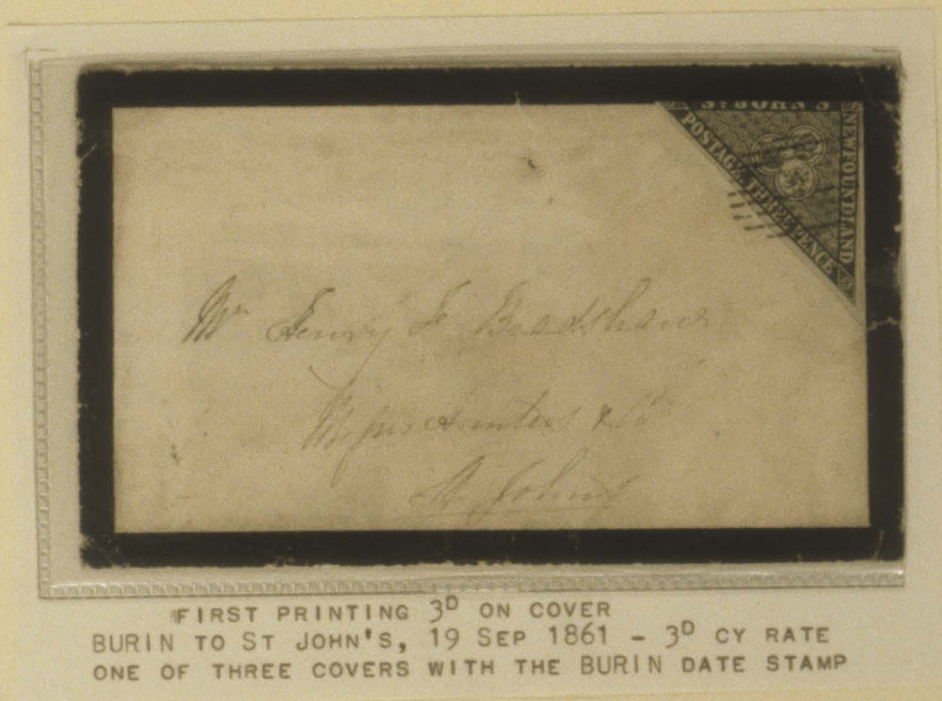 ST JOHN'S
NEWFOUNDLAND
POSTAGE THREE PENCE
Mr Henry F Bradshaw
Messrs Hunters & Co
St Johns
FIRST PRINTING 3D ON COVER
BURIN TO ST JOHN'S, 19 SEP 1861 - 3D CY RATE
ONE OF THREE COVERS WITH THE BURIN DATE STAMP